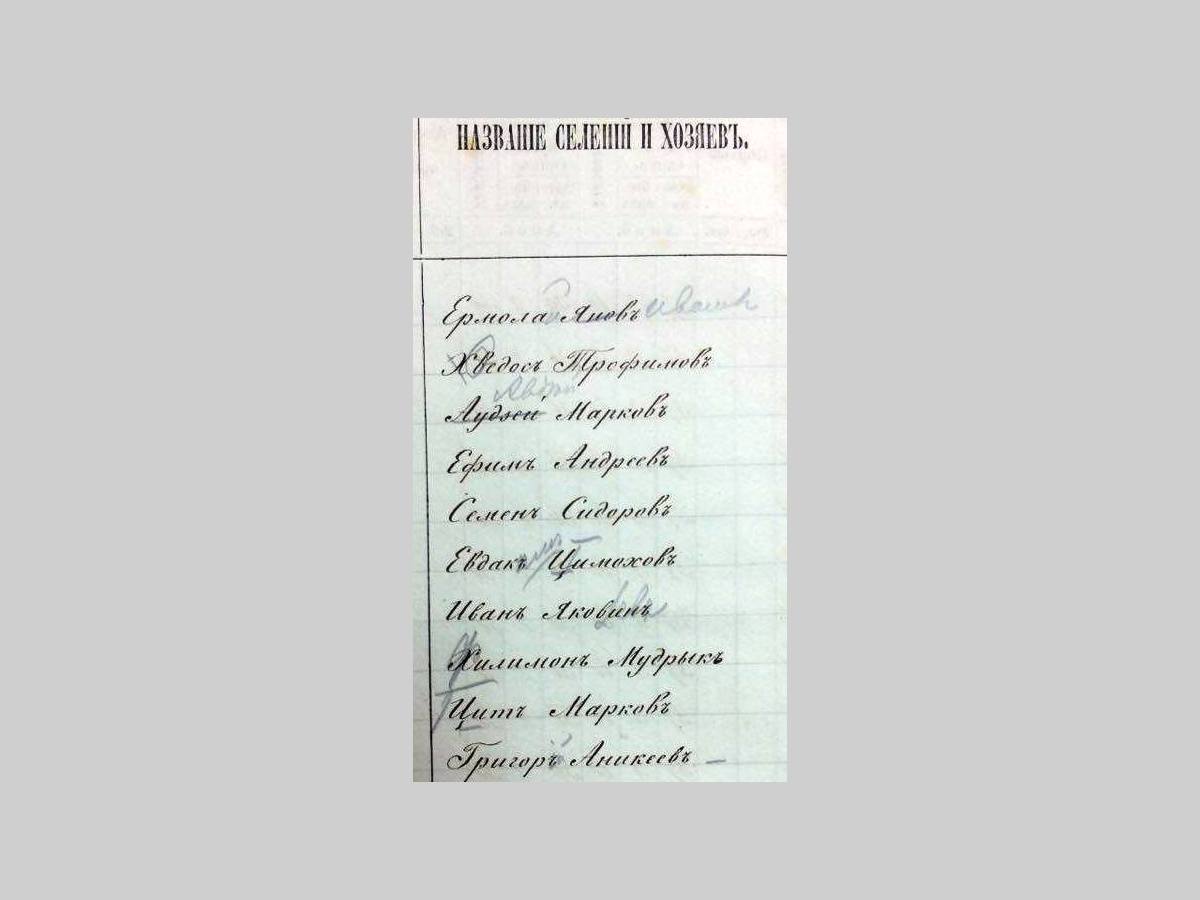 НАЗВАНІЕ СЕЛЕНІЙ И ХОЗЯЕВЪ.
Ермола Яновъ Иванъ
Хведосъ Трофимовъ
Аудзей Марковъ
Ефимъ Андреевъ
Семенъ Сидоровъ
Евдакъ Цимоховъ
Иванъ Яковинъ
Хилимонъ Мудрыкъ
Цитъ Марковъ
Григоръ Аникеевъ